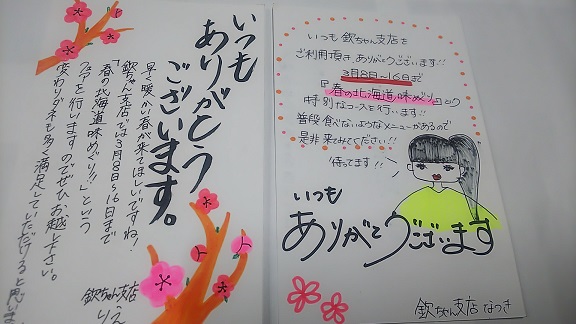 いつも
ありがとう
ございます。
早く暖かい春が来てほしいですね!
欽ちゃん支店では3月8日〜16日まで
「春の北海道味めぐり!!」という
フェアを行いますのでぜひお越し下さい。
変わりダネも多く満足していただけると思いま
欽ちゃん支店
いつも 欽ちゃん支店を
ご利用頂き、ありがとうございます!!
3月8日〜16日まで
『春の北海道味めぐり』
特別なコースを行います!!
普段食べないようなメニューがあるので
是非来てみてください!!
待ってます!!
いつも
ありがとうございます
欽ちゃん支店 なつき